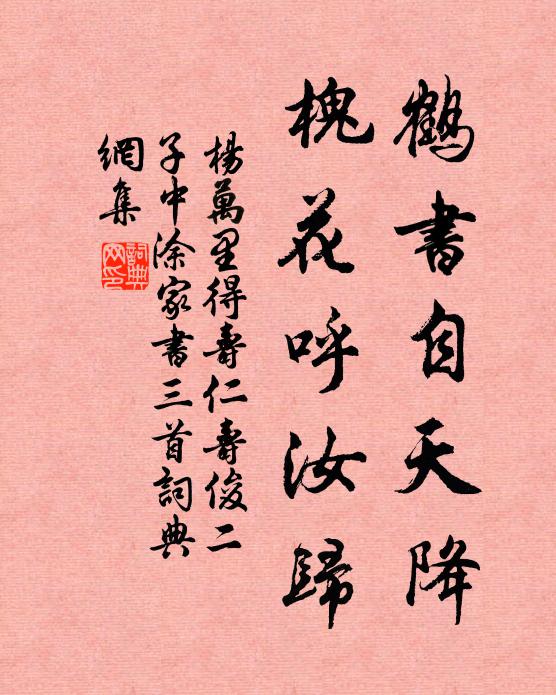 鶴書自天降
槐花呼汝歸
楊萬里得壽仁壽俊二
子中涂家書三首詞典
網集
詞典
网印